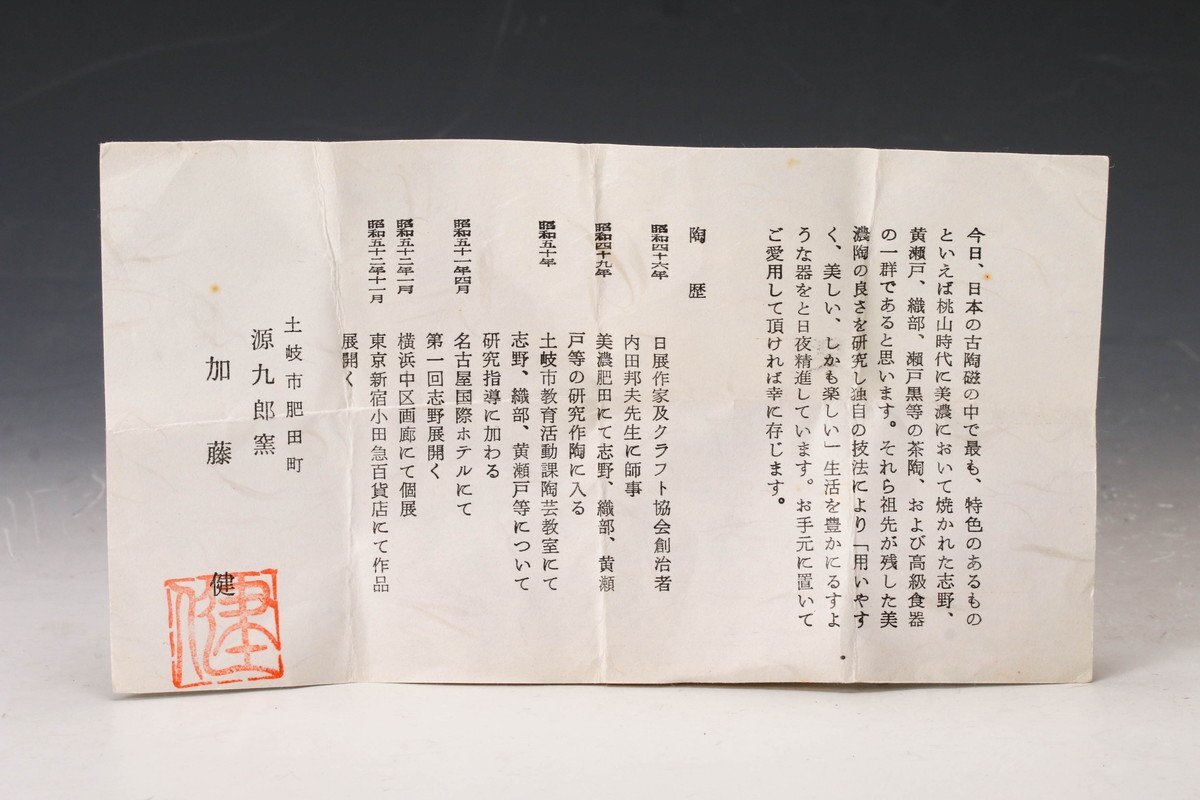 今日、日本の古陶磁の中で最も、特色のあるもの
といえば桃山時代に美濃において焼かれた志野、
黄瀬戸、織部、瀬戸黒等の茶陶、および高級食器
の一群であると思います。それら祖先が残した美
濃陶の良さを研究し独自の技法により「用いやす
く、美しい、しかも楽しい」生活を豊かにるすよ
うな器をと日夜精進しています。お手元に置いて
ご愛用して頂ければ幸に存じます。
陶歴
昭和四十六年 日展作家及クラフト協会創治者
内田邦夫先生に師事
昭和四十九年 美濃肥田にて志野、織部、黄瀬
戸等の研究作陶に入る
昭和五十年 土岐市教育活動課陶芸教室にて
志野、織部、黄瀬戸等について
研究指導に加わる
昭和五十一年四月 名古屋国際ホテルにて
第一回志野展開く
昭和五十二年一月 横浜中区画廊にて個展
昭和五十二年十一月 東京新宿小田急百貨店にて作品
展開く
土岐市肥田町
源九郎窯
加藤健
健